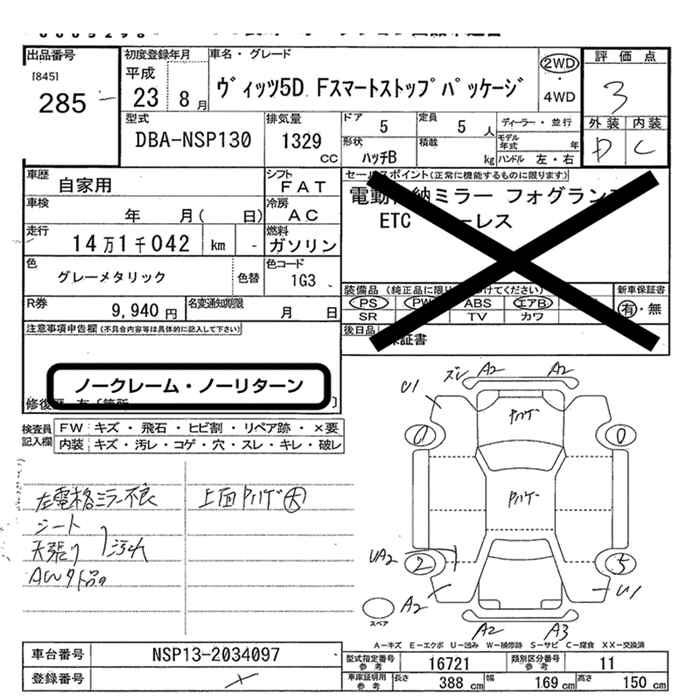 出品番号
[845]
285
初度登録年月
平成
23 8 月
車名・グレード
ヴィッツ5D Fスマートストップパッケージ
2WD
4WD
評価点
3
外装 内装
D C
型式
DBA-NSP130
排気量
1329
CC
ドア
5
定員
5 人
形状
ハッチB
積載
kg
ディーラー・並行
モデル年式 年
ハンドル 左・右
車歴
自家用
シフト
FAT
車検
年 月( 日)
冷房
AC
走行
14万1千042 km -
燃料
ガソリン
色
グレーメタリック
色替
色コード
1G3
R券
9,940円
名変通知期限
月 日
セールスポイント(正常に機能するものに限ります)
電動 納ミラー フォグラン
ETC ーレス
装備品 (純正品に限り けてください)
PS PW ABS エアB
SR TV カワ
新車保証書
有・無
後日品
保証書
注意事項申告欄(不具合内容等は具体的に記入して下さい)
ノークレーム・ノーリターン
検査員記入欄
FW キズ・飛石・ヒビ割・リペア跡・×要
内装 キズ・汚レ・コゲ・穴・スレ・キレ・破レ
左電格ミラー不良
シート
天張り 汚れ
上面 大
ズレ A2 A2
U1
0 0
UA2 2 5
A2 U1
A2 A3
スペア
A-キズ E-エクボ U-凹み W-補修跡 S-サビ C-腐食 XX-交換済
車台番号
NSP13-2034097
登録番号
型式指定番号
参考
16721
類別区分番号
参考
11
車庫証明用
参考
長さ
388 cm
幅
169 cm
高さ
150 cm